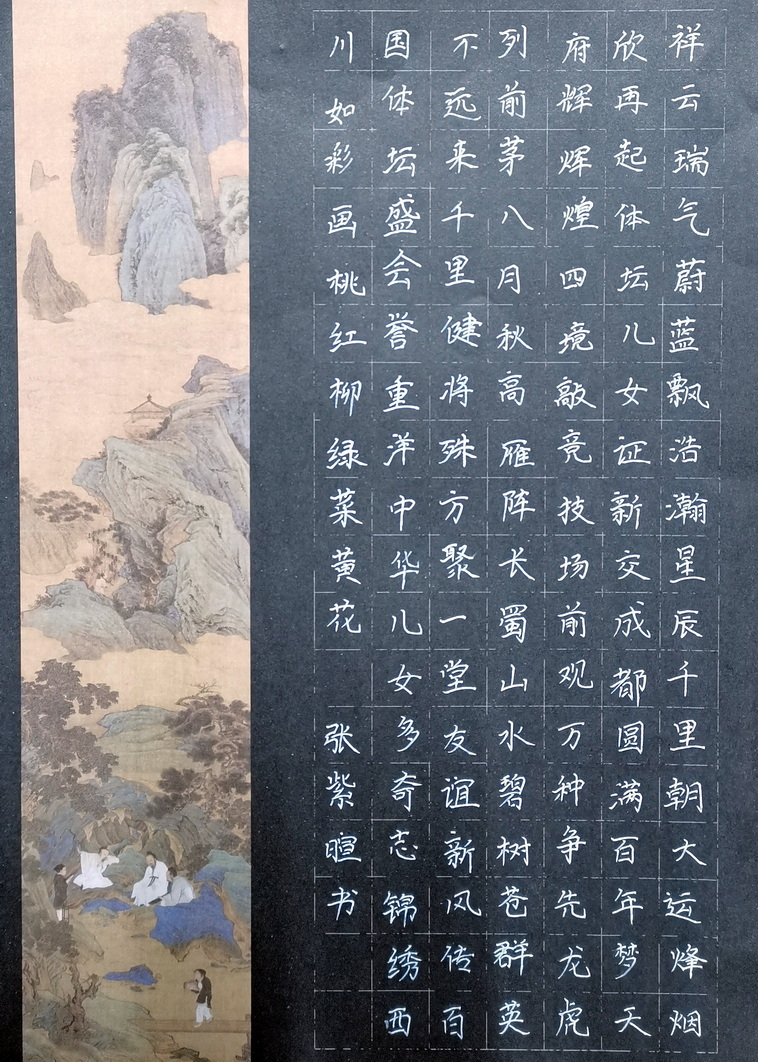 祥云瑞气蔚蓝飘浩瀚星辰千里朝大运烽烟
欣再起体坛儿女证新交成都圆满百年梦天
府辉辉煌四境敲竞技场前观万种争先龙虎
列前茅八月秋高雁阵长蜀山水碧树苍群英
不远来千里健将殊方聚一堂友谊新风传百
国体坛盛会誉重洋中华儿女多奇志锦绣西
川如彩画桃红柳绿菜黄花
张紫暄书